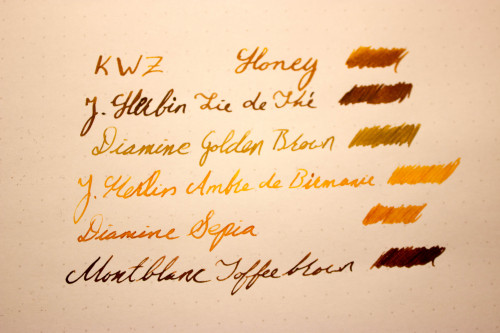 KWZ Honey
J. Herbin Lie de Thé
Diamine Golden Brown
J. Herbin Ambre de Birmanie
Diamine Sepia
Montblanc Toffee brown